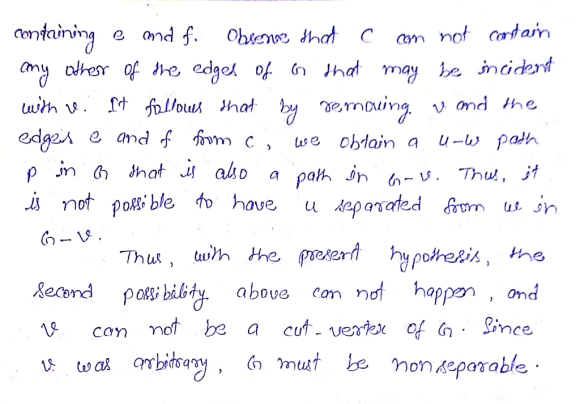 containing e and f. Observe that C can not contain
any other of the edges of G that may be incident
with v. It follows that by removing v and the
edges e and f from C, we obtain a u-w path
p in G that is also a path in G-v. Thus, it
is not possible to have u separated from w in
G-v.
Thus, with the present hypothesis, the
second possibility above can not happen, and
v can not be a cut-vertex of G. Since
v was arbitrary, G must be nonseparable.